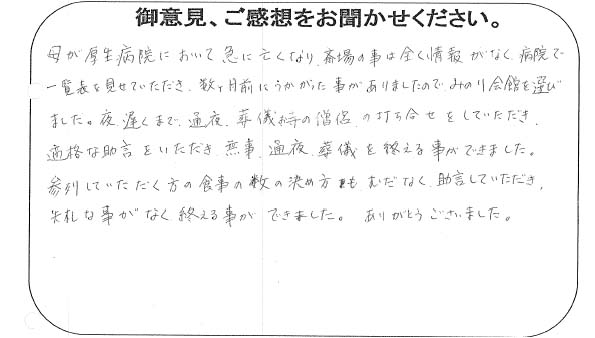 御意見、ご感想をお聞かせください。
母が厚生病院において急に亡くなり、斎場の事は全く情報がなく、病院で
一覧表を見せていただき、数ヶ月前にうかがった事がありましたので、みのり会館を選び
ました。夜遅くまで、通夜、葬儀お寺の僧侶の打ち合せをしていただき、
適格な助言をいただき無事、通夜、葬儀を終える事ができました。
参列していただく方の食事の数の決め方もむだなく、助言していただき、
失礼な事がなく終える事ができました。ありがとうございました。